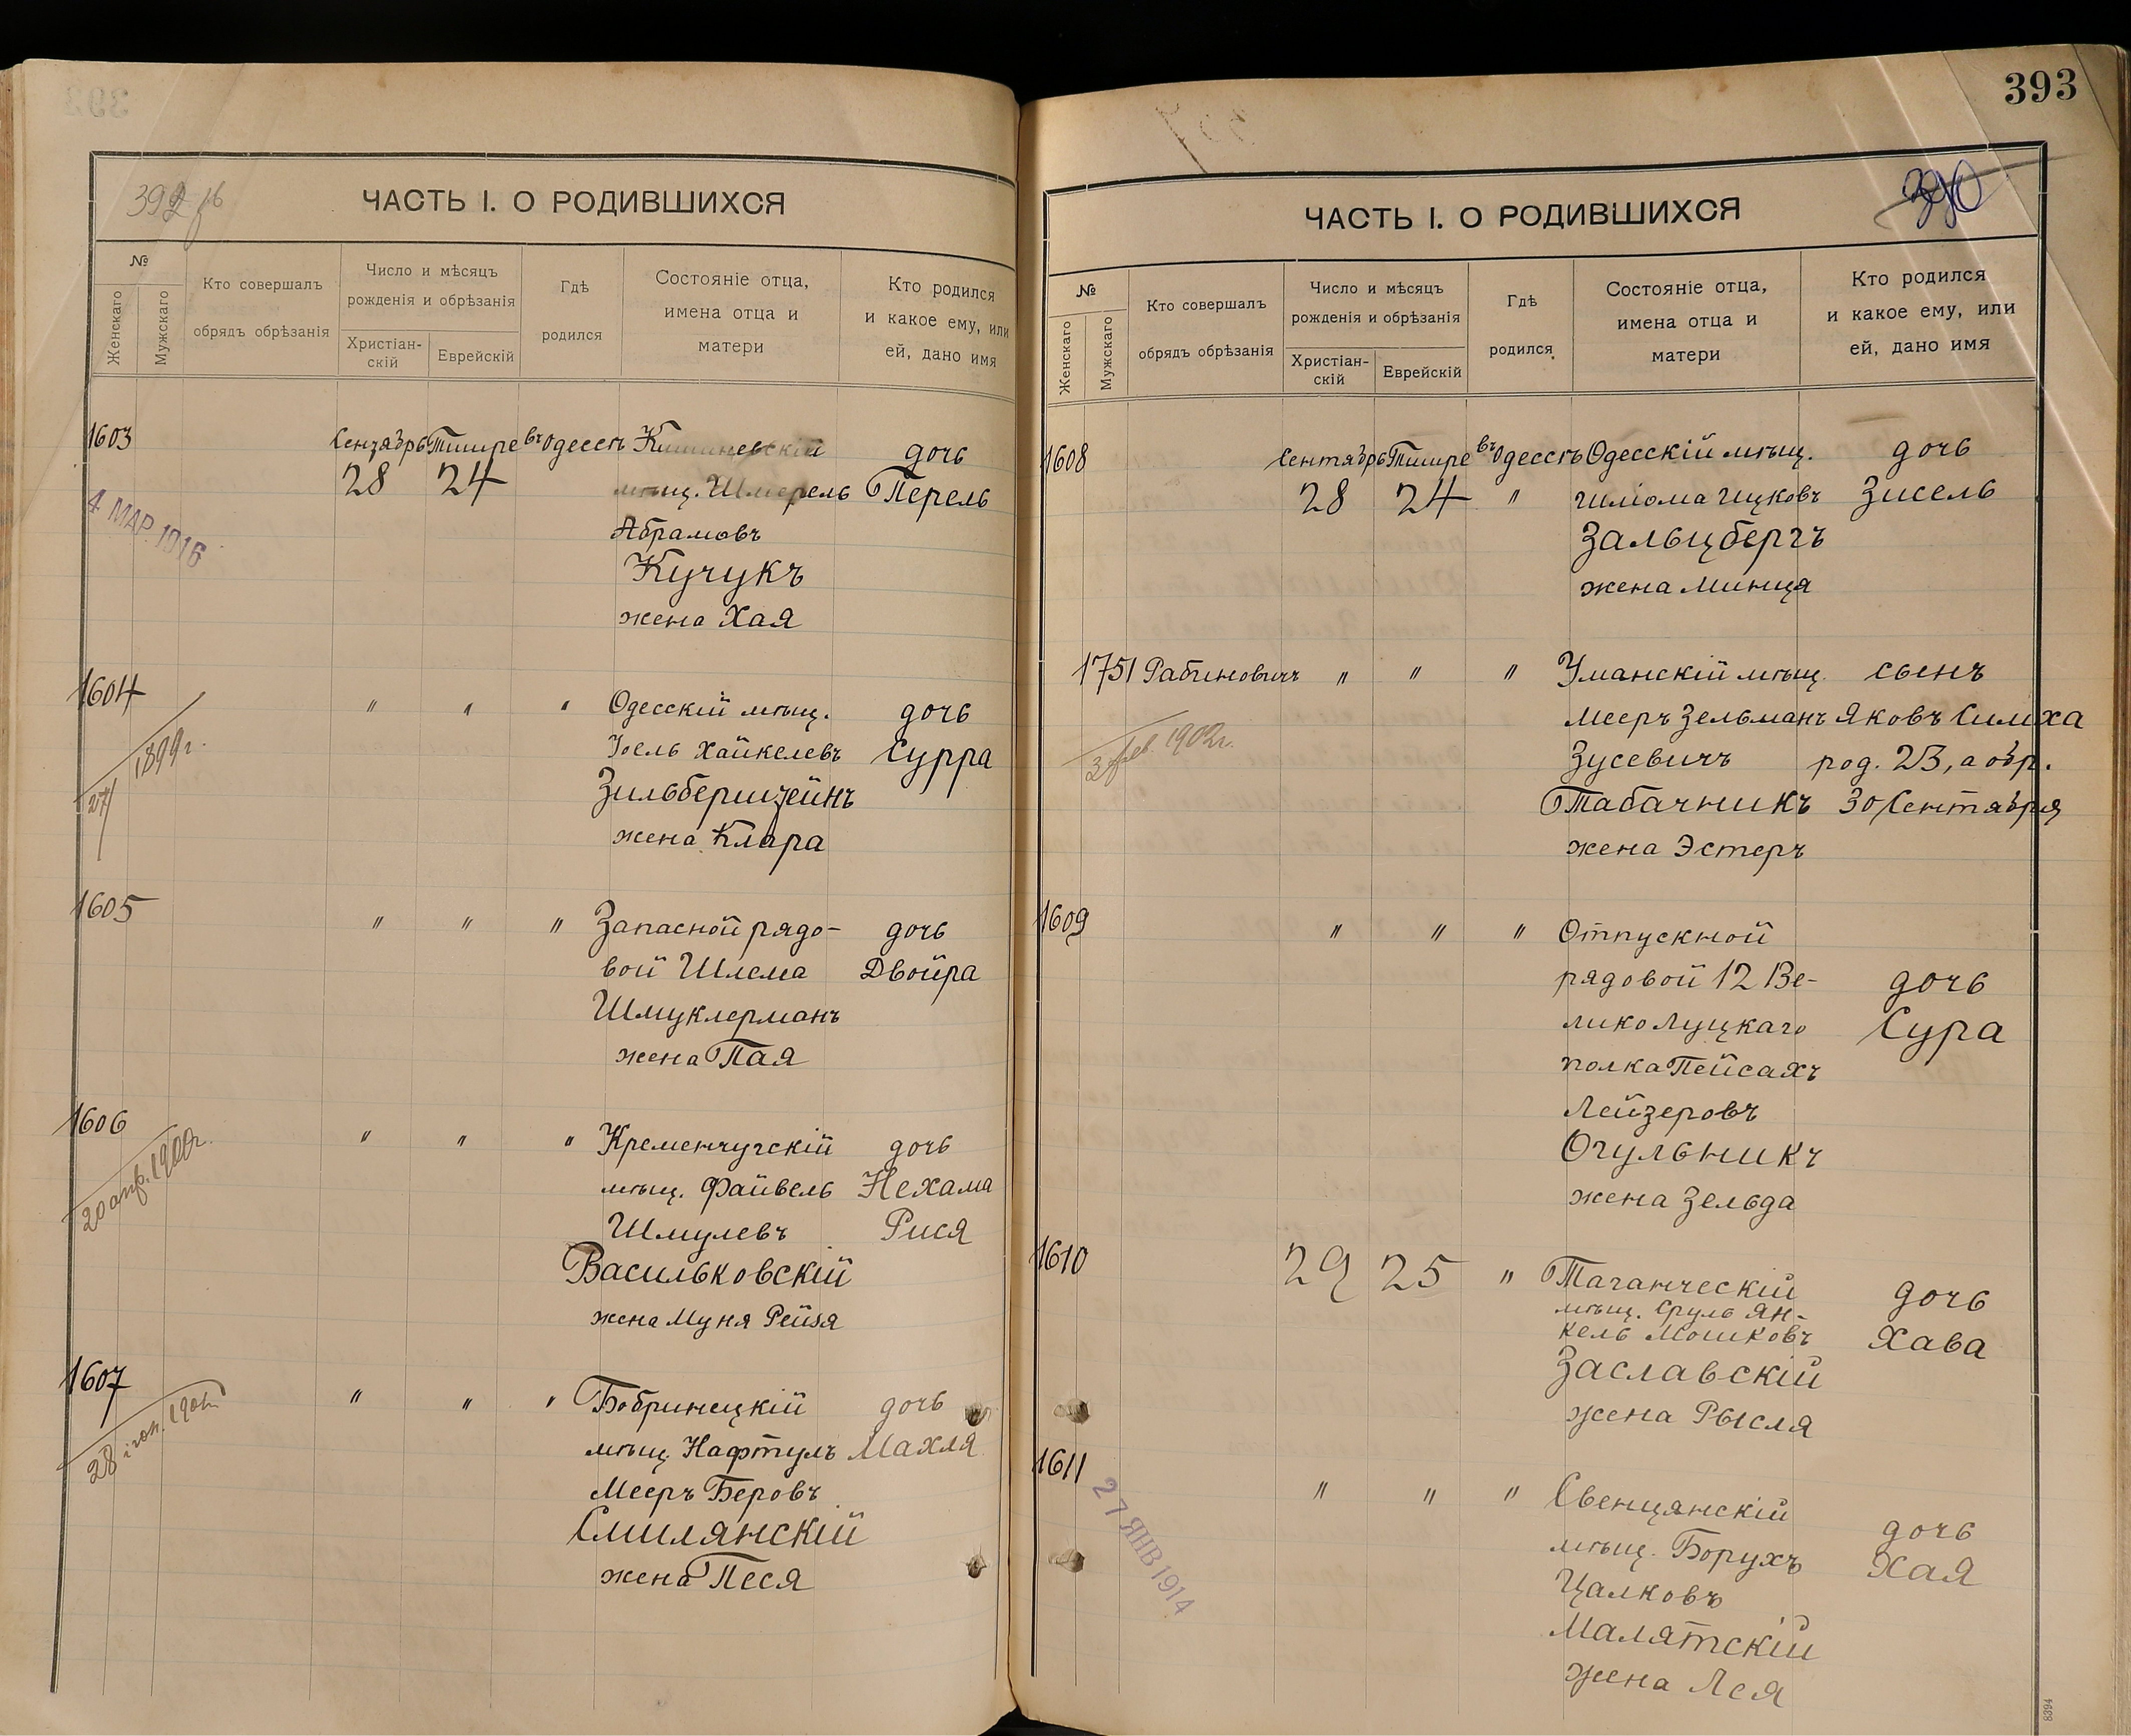 392 об
ЧАСТЬ I. О РОДИВШИХСЯ
№
Женскаго
Мужскаго
Кто совершалъ
обрядъ обрѣзанія
Число и мѣсяцъ
рожденія и обрѣзанія
Христіан-
скій
Еврейскій
Гдѣ
родился
Состояніе отца,
имена отца и
матери
Кто родился
и какое ему, или
ей, дано имя
1603 Сентябрь Тишре въ Одессѣ Кишиневскій дочь
28 24 мѣщ. Шмерель Перель
4 МАР. 1916
Абрамовъ
Кучукъ
жена Хая
1604 " " " Одесскій мѣщ. дочь
Іоель Хайкелевъ Сурра
27/ 1899г.
Зильберштейнъ
жена Клара
1605 " " " Запасной рядо- дочь
вой Шлема Двойра
Шмуклерманъ
жена Пая
1606 " " " Кременчугскій дочь
20 апр. 1900г.
мѣщ. Файвель Нехама
Шмулевъ Рися
Васильковскій
жена Муня Рейзя
1607 " " " Бобринецкій дочь
28
мѣщ. Нафтулъ Махля
Мееръ Беровъ
Смилянскій
жена Песя
393
390
ЧАСТЬ I. О РОДИВШИХСЯ
№
Женскаго
Мужскаго
Кто совершалъ
обрядъ обрѣзанія
Число и мѣсяцъ
рожденія и обрѣзанія
Христіан-
скій
Еврейскій
Гдѣ
родился
Состояніе отца,
имена отца и
матери
Кто родился
и какое ему, или
ей, дано имя
1608 Сентябрь Тишре въ Одессѣ Одесскій мѣщ. дочь
28 24 " Шліома Ицковъ Зисель
Зальцбергъ
жена Минця
1751 Рабиновичъ " " " Уманскій мѣщ. сынъ
Мееръ Зельманъ Яковъ Симха
3 фев. 1902г.
Зусевичъ род. 23, а обр.
Табачникъ 30 Сентября
жена Эстеръ
1609 " " " Отпускной
рядовой 12 Ве- дочь
лико Луцкаго Сура
полка Пейсахъ
Лейзеровъ
Огульникъ
жена Зельда
1610 29 25 " Таганческій дочь
мѣщ. Сруль Ян-
кель Мошковъ Хава
Заславскій
жена Рысля
1611 " " " Свенцянскій
27 ЯНВ 1914
дочь
мѣщ. Борухъ Хая
Цалковъ
Малятскій
жена Лея
8394